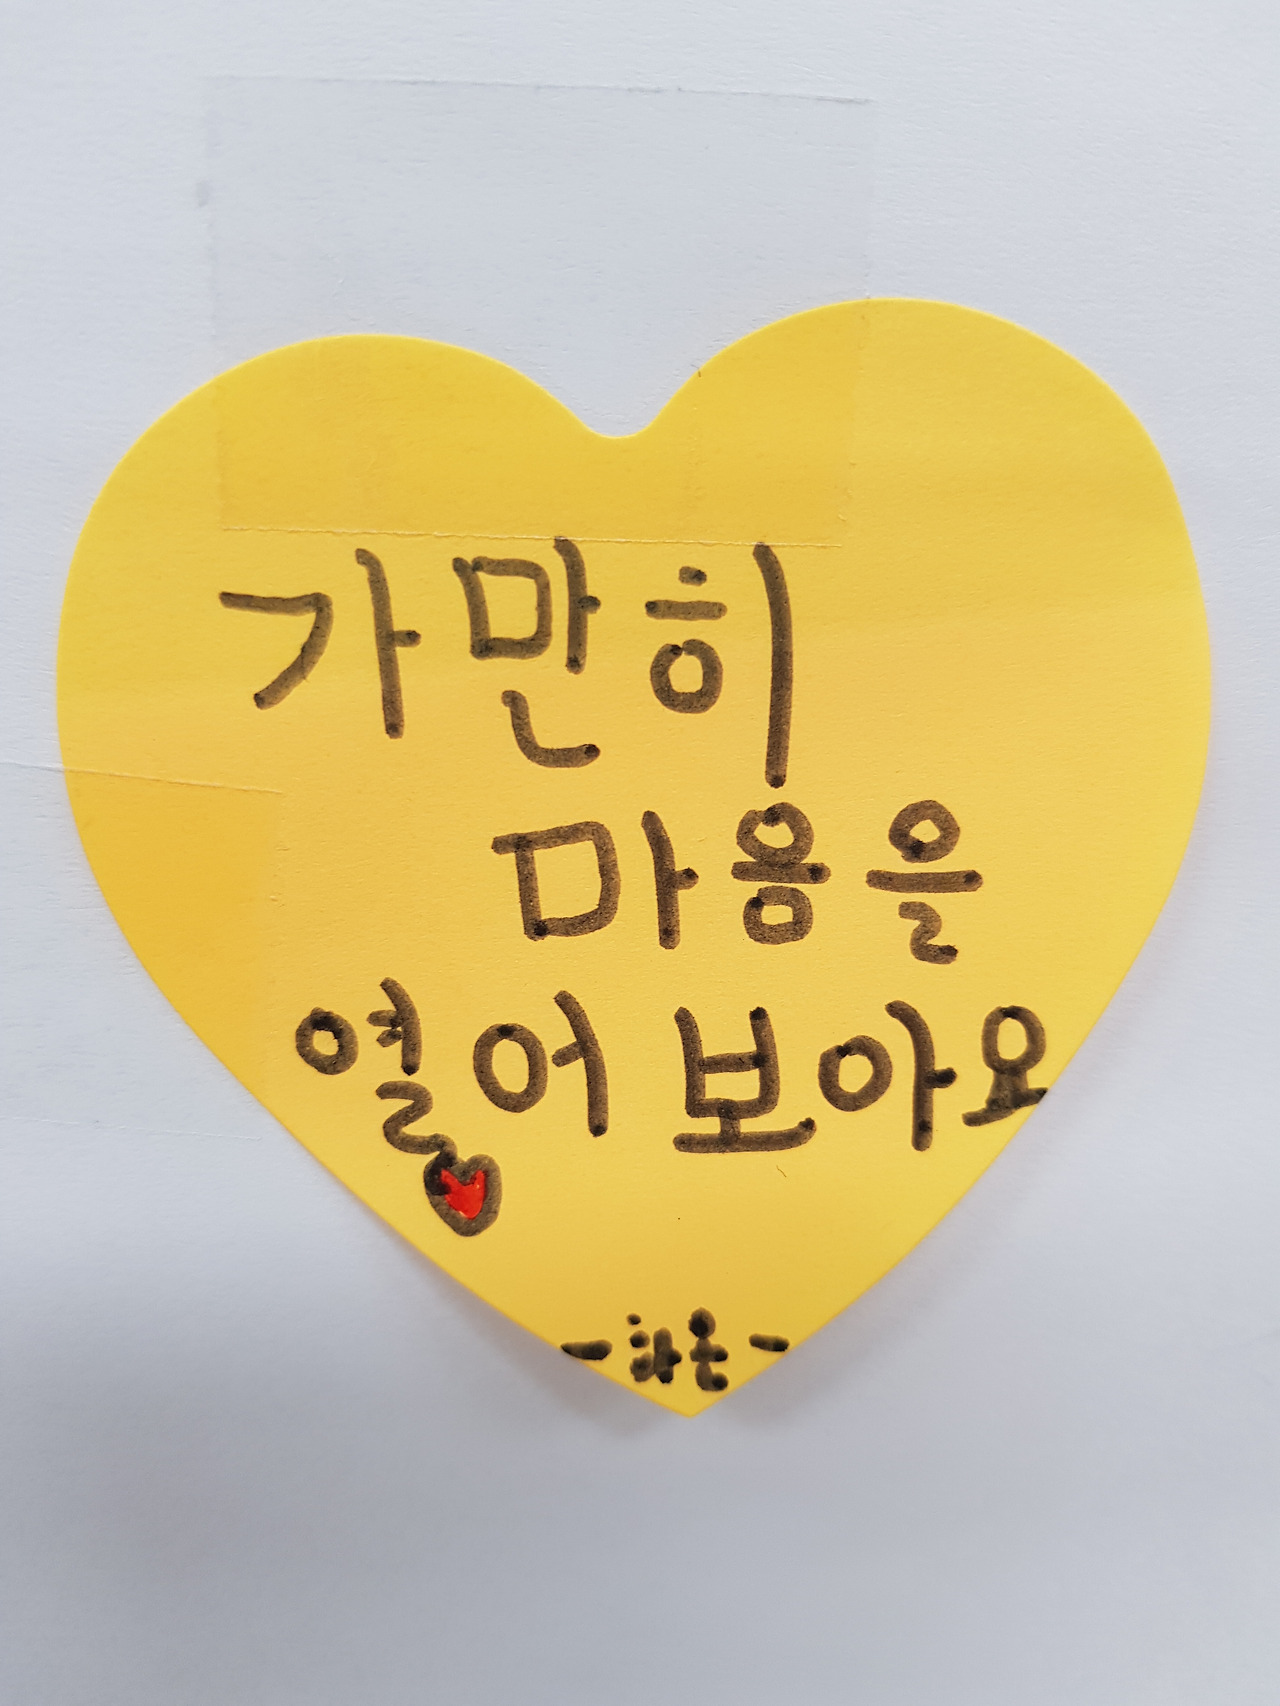 가만히
마음을
열어 보아요
- 하은 -